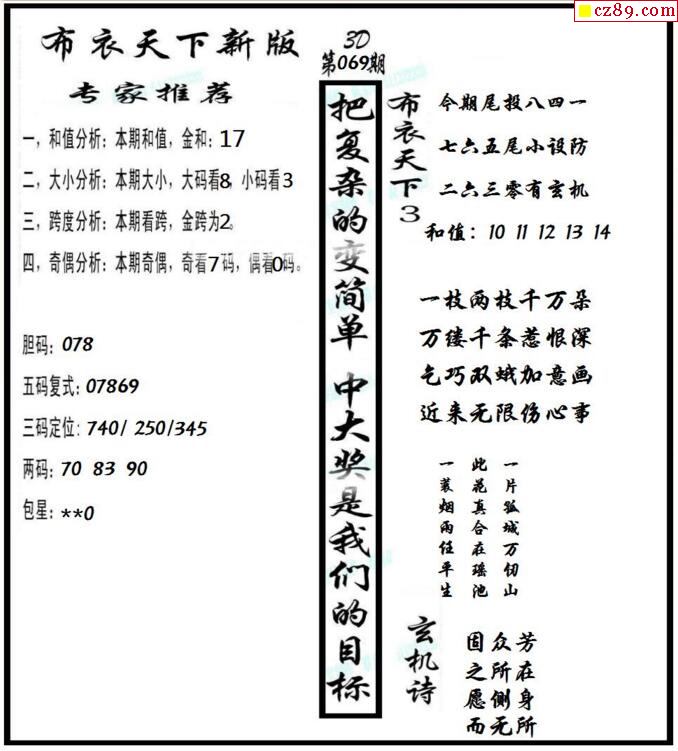 cz89.com
布衣天下新版
专家推荐
一，和值分析：本期和值，金和：17
二，大小分析：本期大小，大码看8，小码看3
三，跨度分析：本期看跨，金跨为2。
四，奇偶分析：本期奇偶，奇看7码，偶看0码。
胆码：078
五码复式：07869
三码定位：740/ 250/345
两码：70 83 90
包星：**0
3D
第069期
把复杂的变简单 中大奖是我们的目标
布衣天下3
今期尾投八四一
七六五尾小设防
二六三零有玄机
和值：10 11 12 13 14
一枝两枝千万朵
万缕千条惹恨深
乞巧双蛾加意画
近来无限伤心事
一片孤城万仞山
此花真合在瑶池
一蓑烟雨任平生
玄机诗
固众芳
之所在
愿侧身
而无所